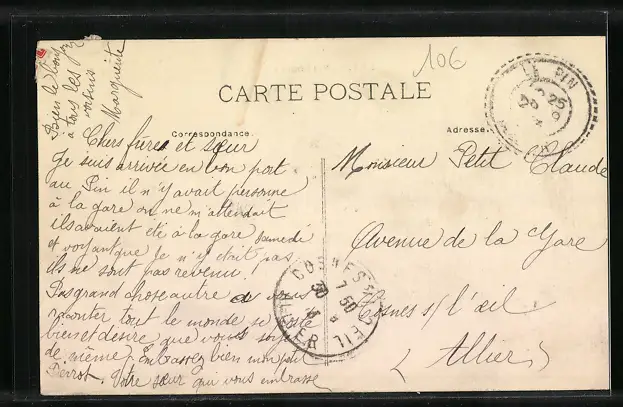 Bien le bonjour
à tous les
voisins
Marguerite
106
CARTE POSTALE
Correspondance.
Adresse.
LE PIN
25
Chers frère et sœur
Je suis arrivée en bon port.
au Pin il n'y avait personne
à la gare on ne m'attendait
ils avaient été à la gare samedi
et voyant que je n'y étais pas
ils ne sont pas revenu!
Pas grand chose autre a vous
raconter tout le monde se porte
bien et desire que vous soyez
de même. Embrassez bien mon petit
Pierrot. Votre sœur qui vous embrasse
Monsieur Petit Claude
Avenue de la Gare
Cosnes s/ l'œil.
(Allier)
COSNES S L'OEIL
7 50
30
ALLIER